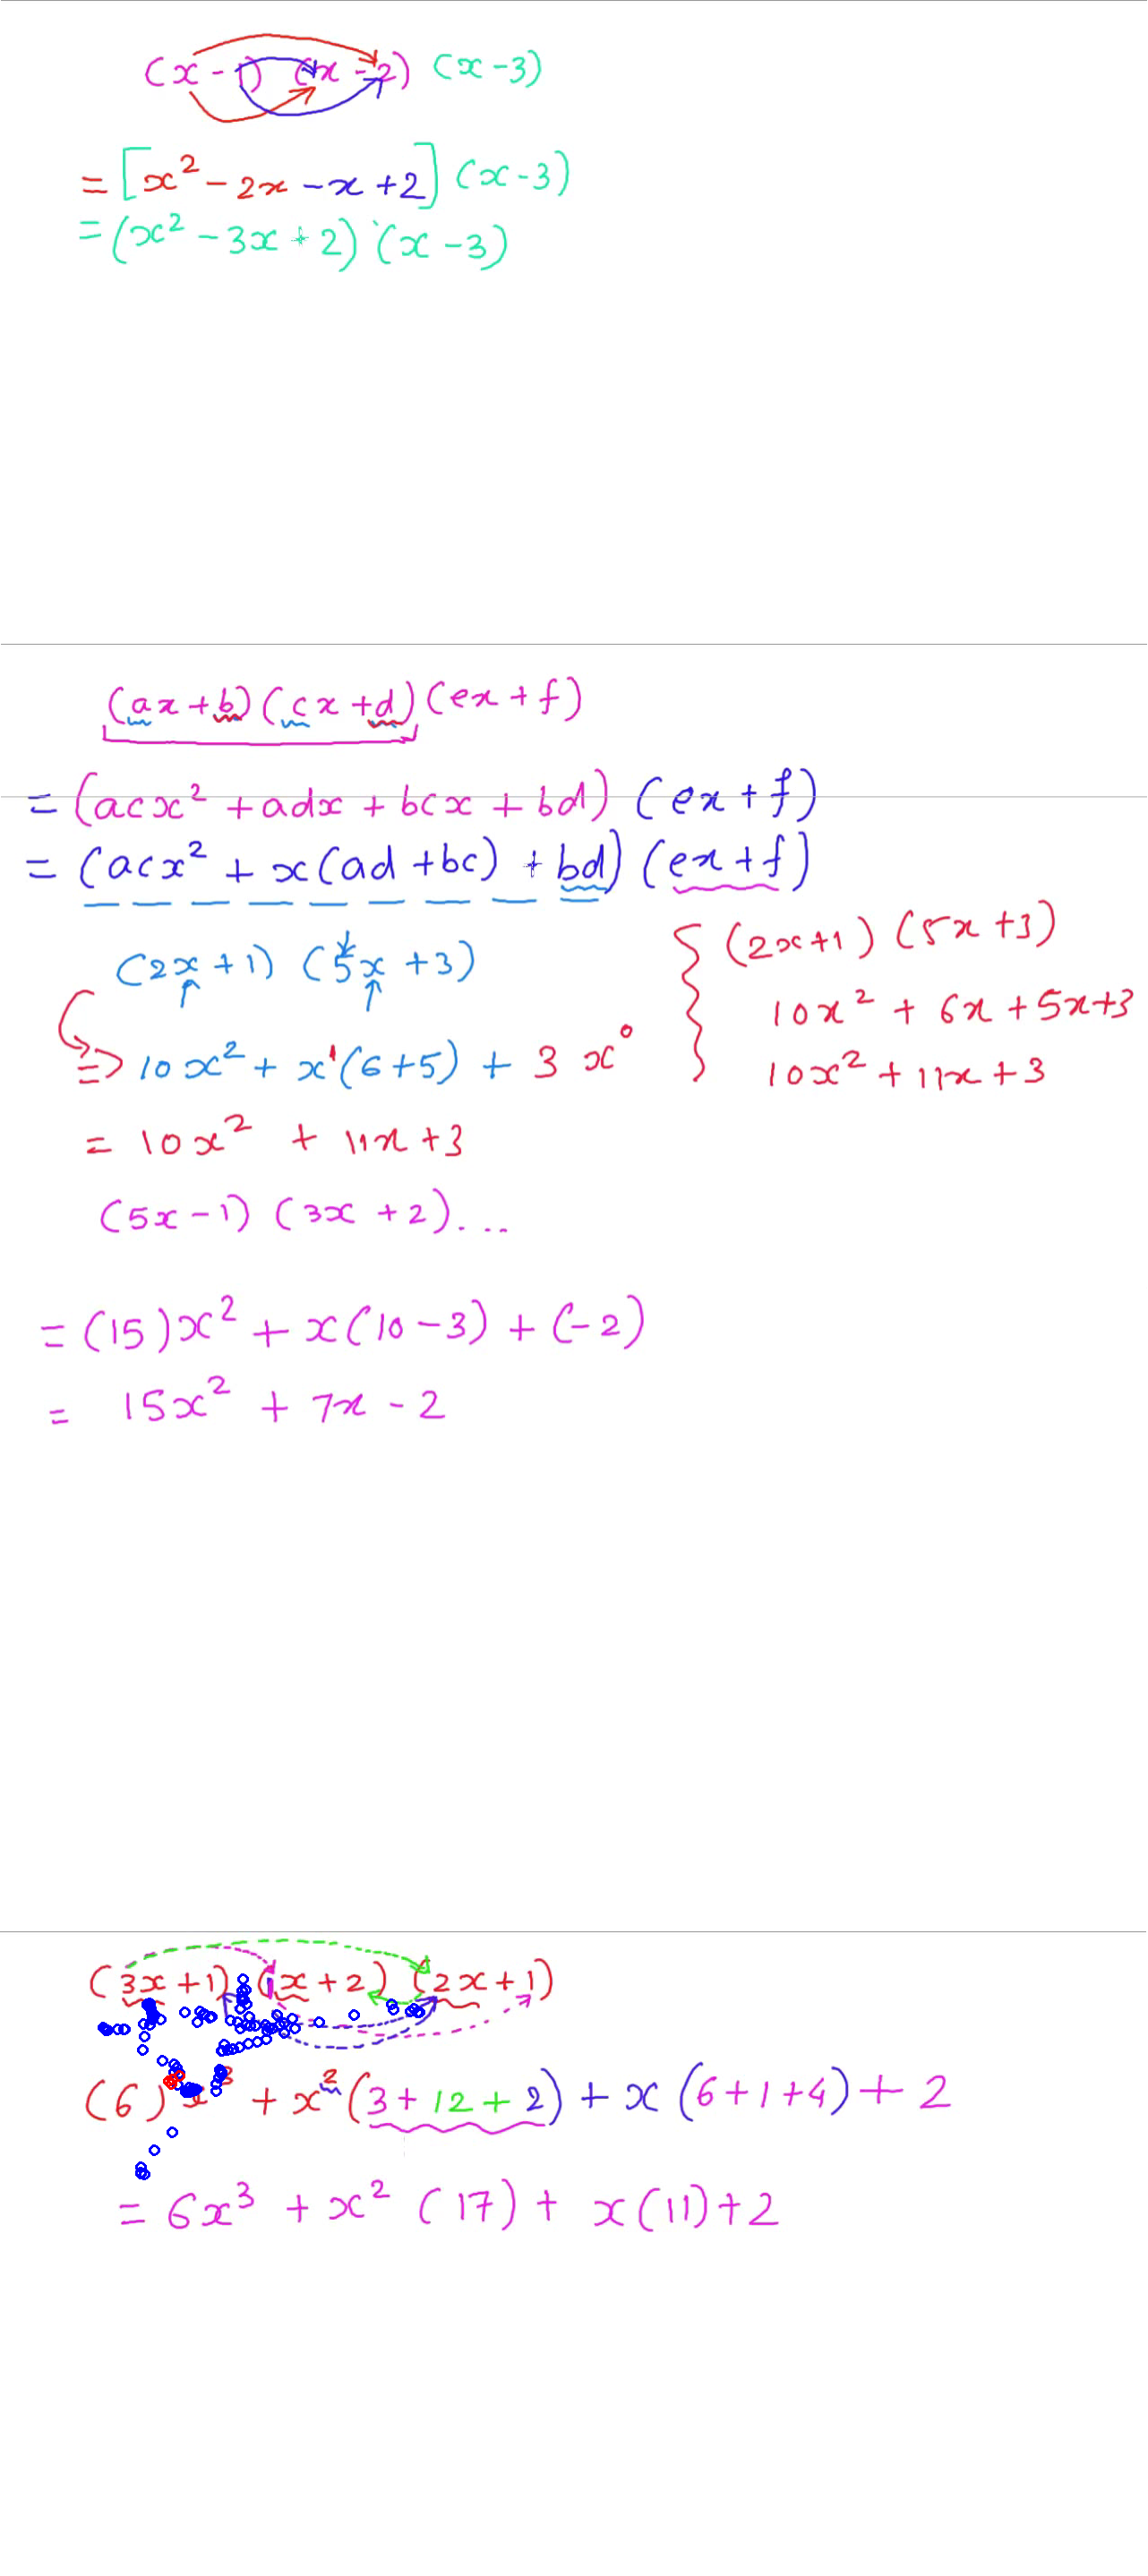 (x - 1) (x - 2) (x - 3)
= [x² - 2x - x + 2] (x - 3)
= (x² - 3x + 2) (x - 3)
(ax + b) (cx + d) (ex + f)
= (acx² + adx + bcx + bd) (ex + f)
= (acx² + x(ad + bc) + bd) (ex + f)
(2x + 1) (5x + 3)
=> 10x² + x¹(6+5) + 3x⁰
= 10x² + 11x + 3
{ (2x+1) (5x+3)
10x² + 6x + 5x + 3
10x² + 11x + 3
(5x - 1) (3x + 2)...
= (15)x² + x(10 - 3) + (-2)
= 15x² + 7x - 2
(3x + 1) (x + 2) (2x + 1)
(6) x³ + x² (3 + 12 + 2) + x (6 + 1 + 4) + 2
= 6x³ + x² (17) + x(11) + 2